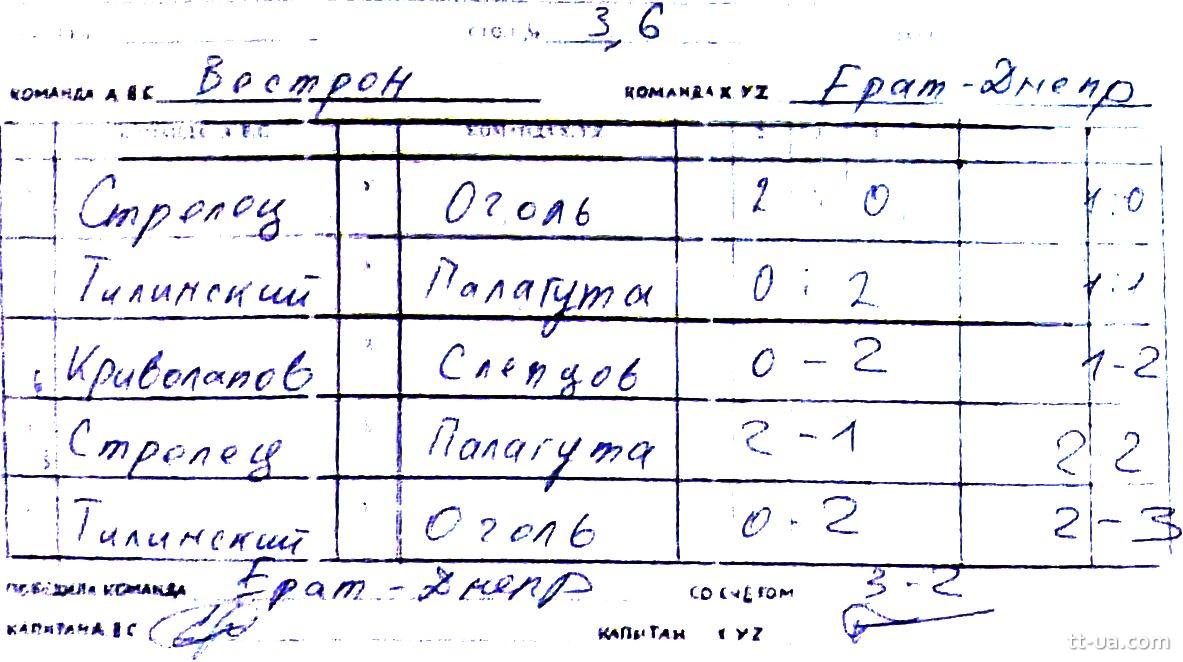 СТОЛ № 3,6
КОМАНДА АВС Вострон КОМАНДА XYZ Ерат-Днепр
КОМАНДА АВС КОМАНДА XYZ
Стрелец Оголь 2 : 0 1:0
Тилинский Палагута 0 : 2 1:1
Криволапов Слепцов 0 - 2 1-2
Стрелец Палагута 2 - 1 2 2
Тилинский Оголь 0 - 2 2-3
ПОБЕДИЛА КОМАНДА Ерат-Днепр СО СЧЕТОМ 3-2
КАПИТАН АВС КАПИТАН XYZ
tt-ua.com